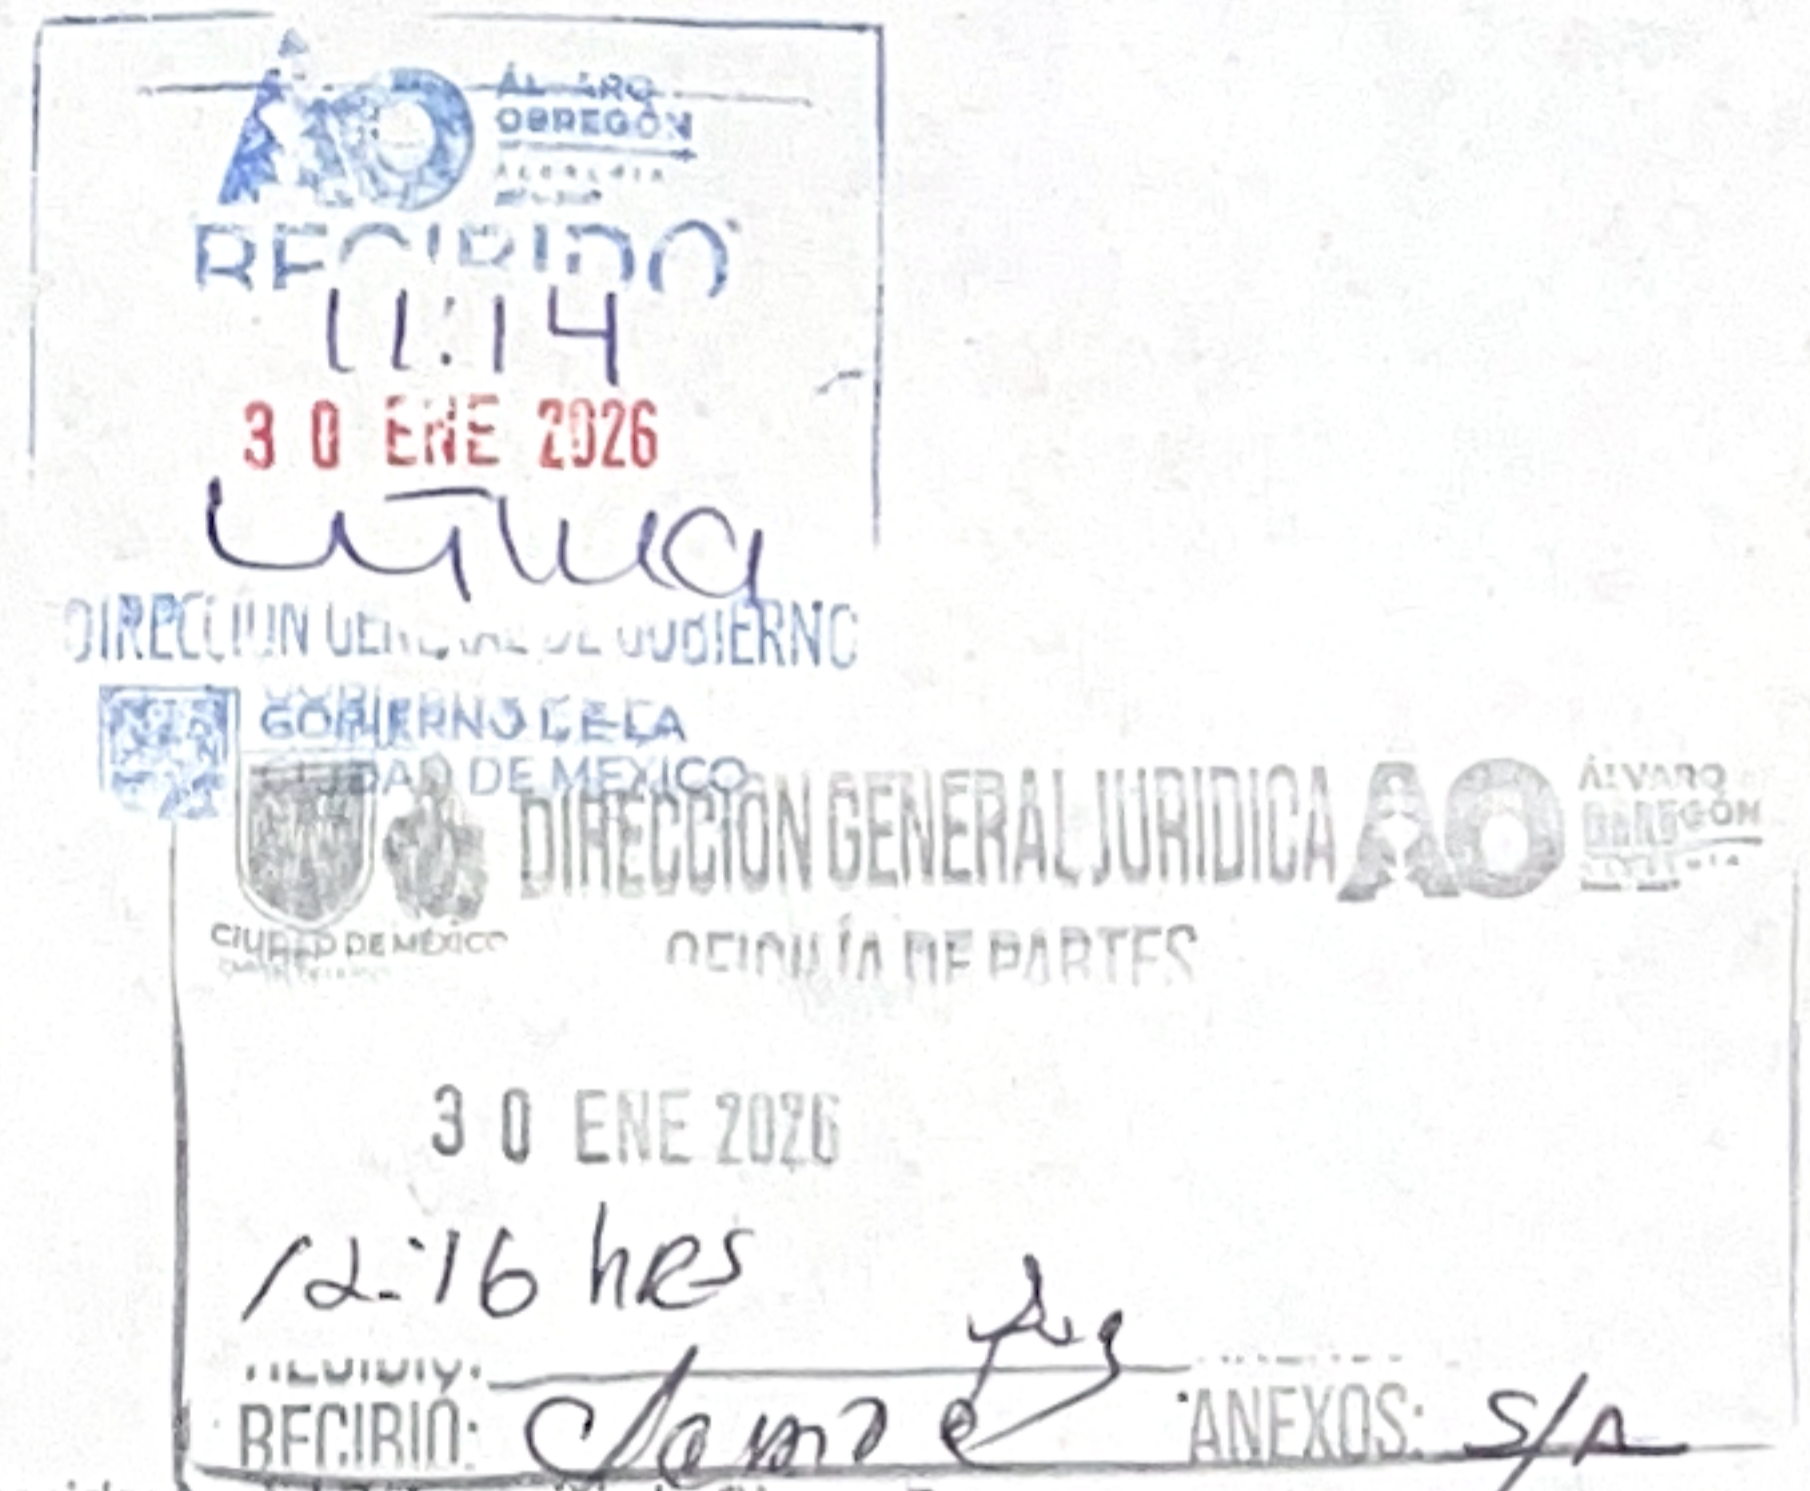 AO ÁLVARO
OBREGÓN
ALCALDÍA
RECIBIDO
11:14
30 ENE 2026
DIRECCIÓN GENERAL DE GOBIERNO
GOBIERNO DE LA
CIUDAD DE MÉXICO
DIRECCIÓN GENERAL JURIDICA AO ÁLVARO
OBREGÓN
ALCALDÍA
CIUDAD DE MÉXICO
OFICIALÍA DE PARTES
30 ENE 2026
12:16 hrs
RECIBIÓ: ANEXOS: S/A